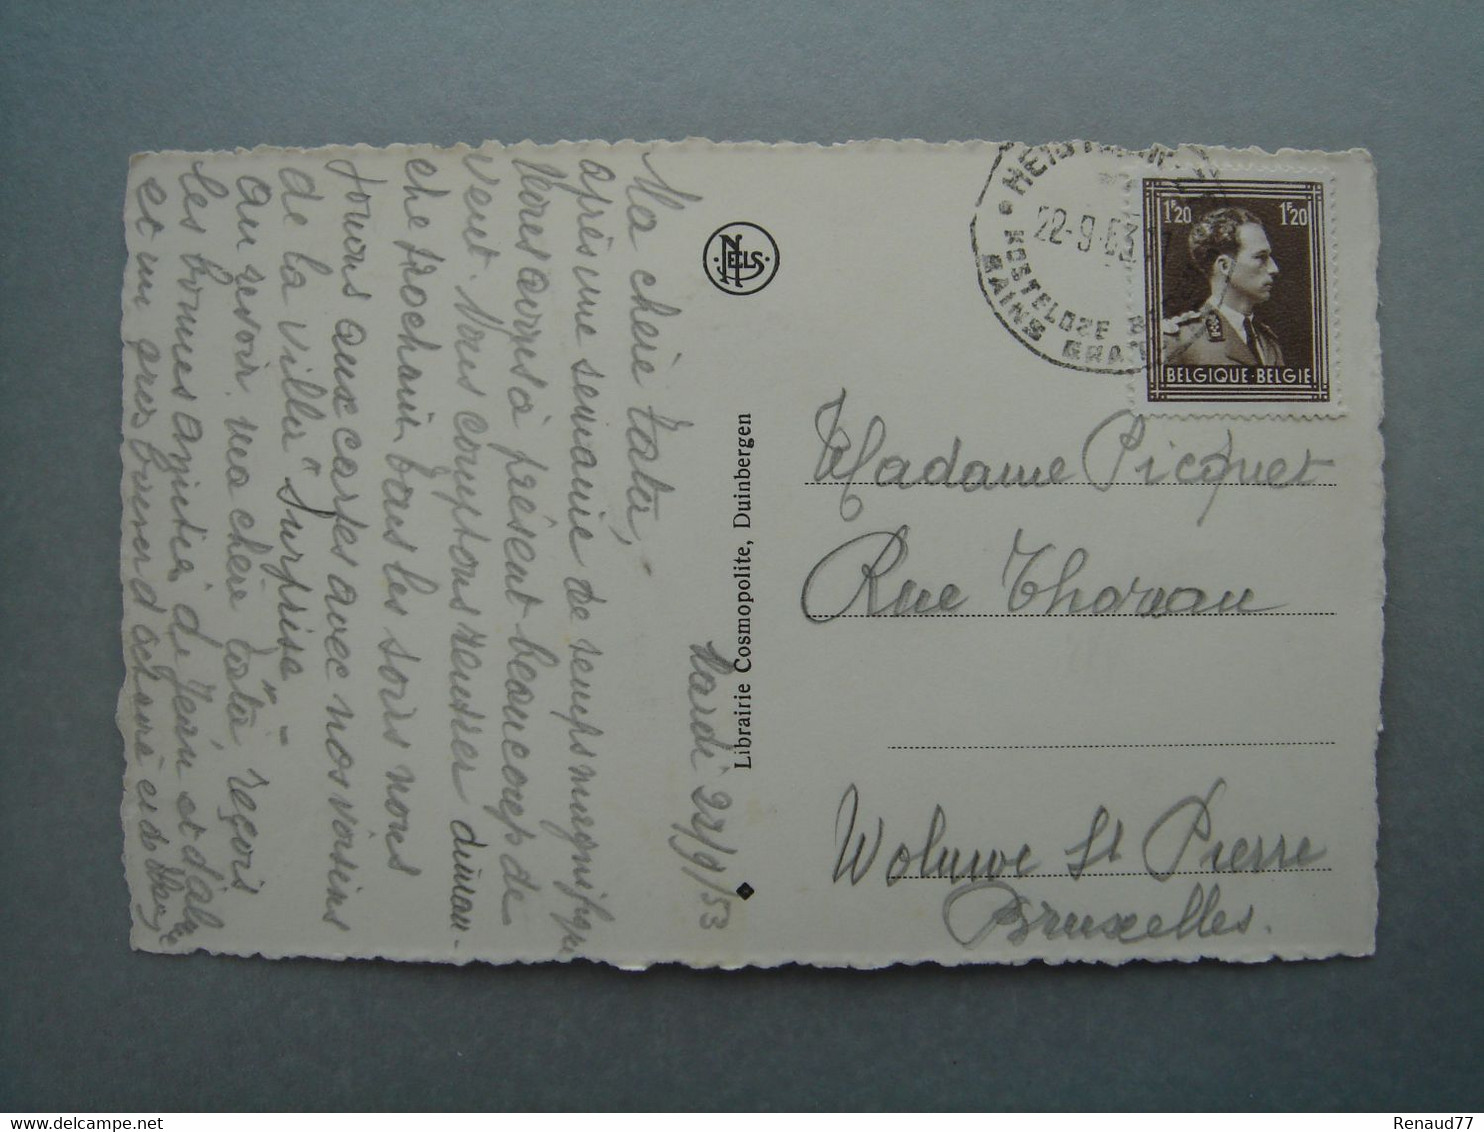 Mardi 22/9/53
Ma chère tata,
après une semaine de temps magnifique
nous avons à présent beaucoup de
vent. Nous comptons rentrer diman-
che prochain tous les soirs nous
jouons aux cartes avec nos voisins
de la villa "Surprise"
Au revoir ma chère tata, reçois
les bonnes amitiés de Jean et d'
et un gros baiser d
NELS
Librairie Cosmopolite, Duinbergen
HEIST
22-9-53
KOSTELOZE
BAINS GRAT
1F20
1F20
BELGIQUE·BELGIE
Madame Picquet
Rue Thoreau
Woluwe St Pierre
Bruxelles.
Renaud77